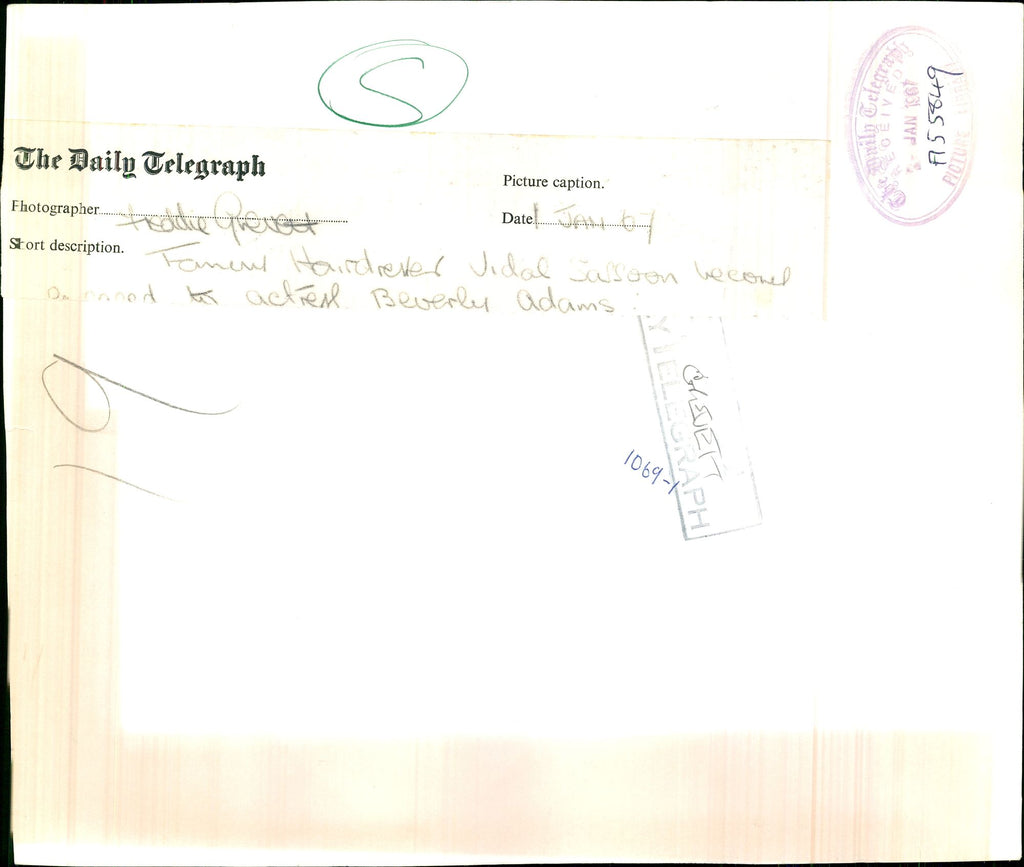 S
The Daily Telegraph
RECEIVED
JAN 1967
PICTURE
A55849
The Daily Telegraph
Picture caption.
Photographer Freddie
Date 1 JAN 67
Short description.
Famous Hairdresser Vidal Sassoon becomes
engaged to actress Beverly Adams
TELEGRAPH
1069-1